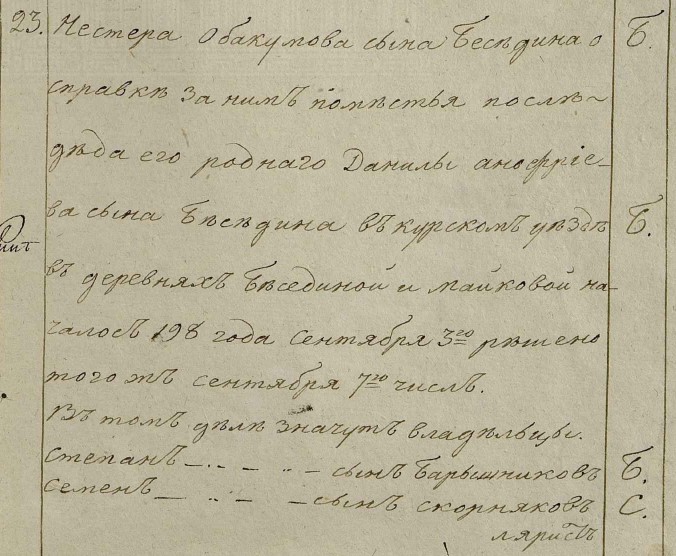 23. Нестера Обакумова сына Бесѣдина о Б.
справкѣ за нимъ помѣстья послѣ
дѣда его роднаго Данилы анофріе-
ва сына Бѣсѣдина въ курскомъ уѣздѣ Б.
въ деревняхъ Бѣсединой и майковой на-
чалось 198 года Сентября 3го рѣшено
того жъ сентября 7го числѣ.
Въ томъ дѣлѣ значутъ владѣльцы.
степанъ — .. — .. — сынъ Барышниковъ Б.
семенъ — .. — — сынъ скорняковъ С.